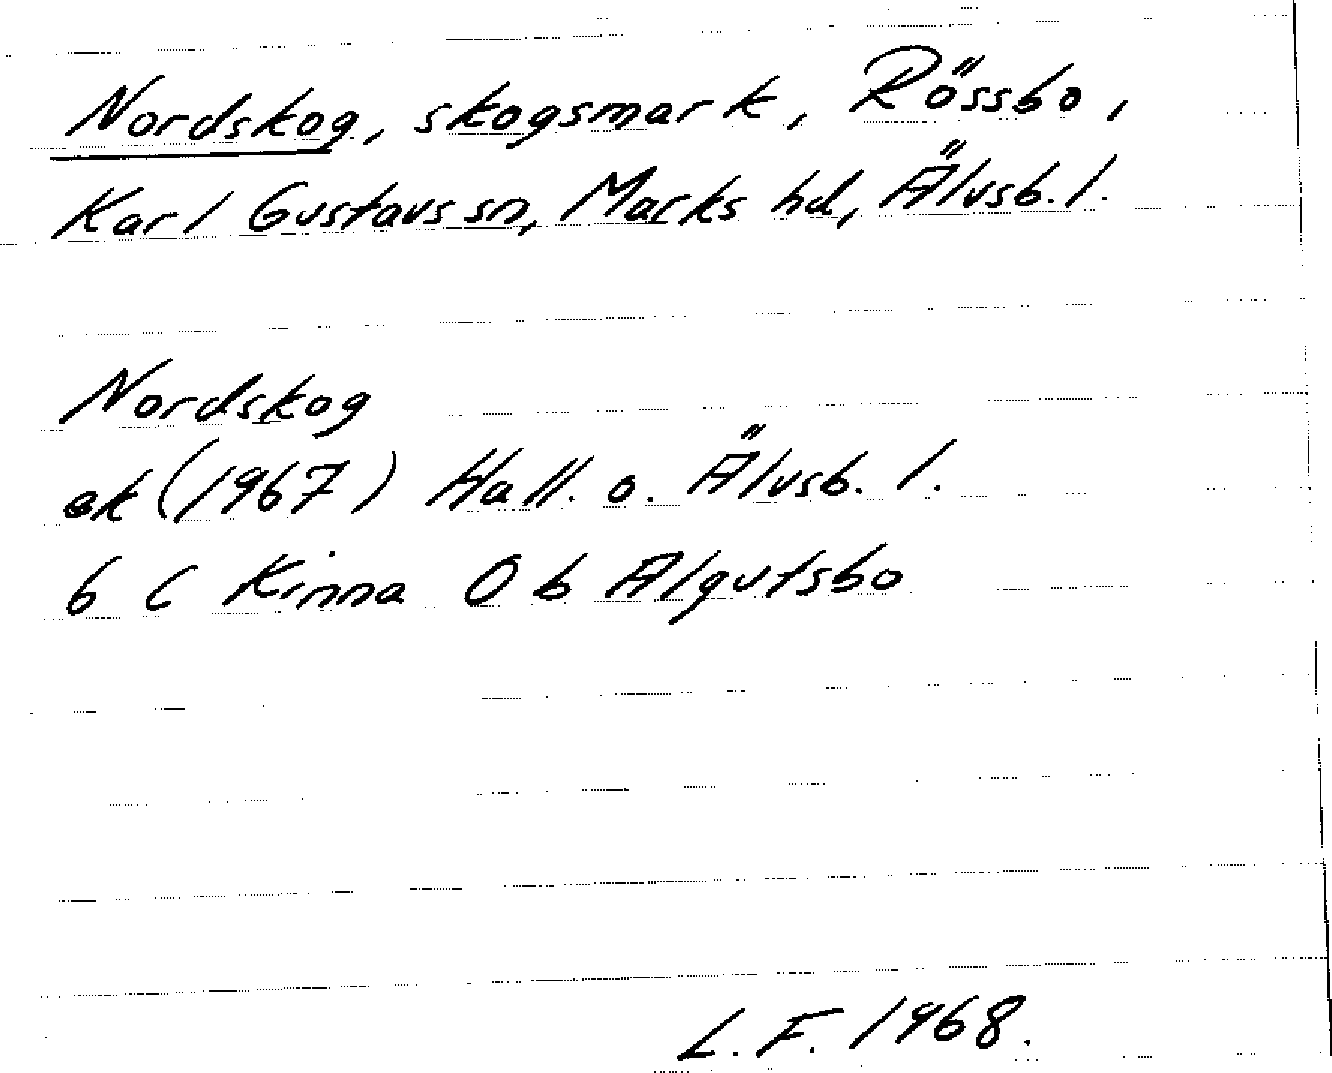 Nordskog, skogsmark, Rössbo,
Karl Gustavs sn, Marks hd, Älvsb. l.
Nordskog
ek (1967) Hall. o. Älvsb. l.
6 C Kinna 0 b Algutsbo
L. F. 1968.